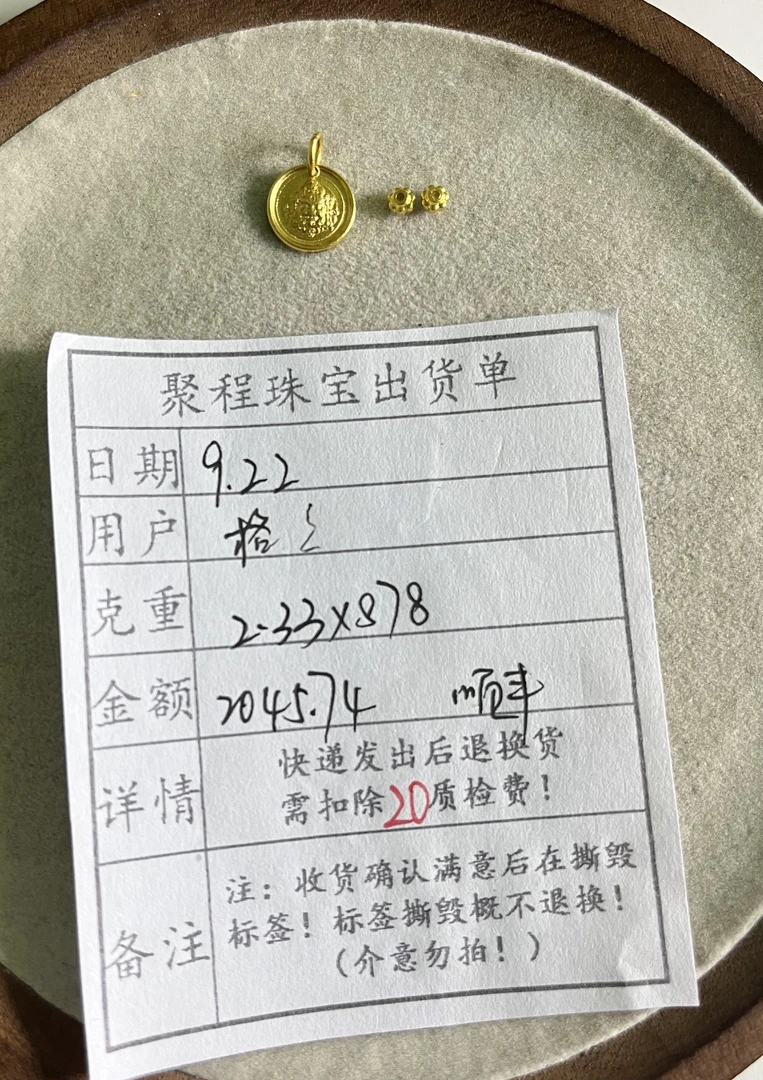 聚程珠宝出货单
日期 9.22
用户 格
克重 2.33×878
金额 2045.74 顺丰
详情 快递发出后退换货
需扣除20质检费！
备注 注：收货确认满意后在撕毁
标签！标签撕毁概不退换！
（介意勿拍！）